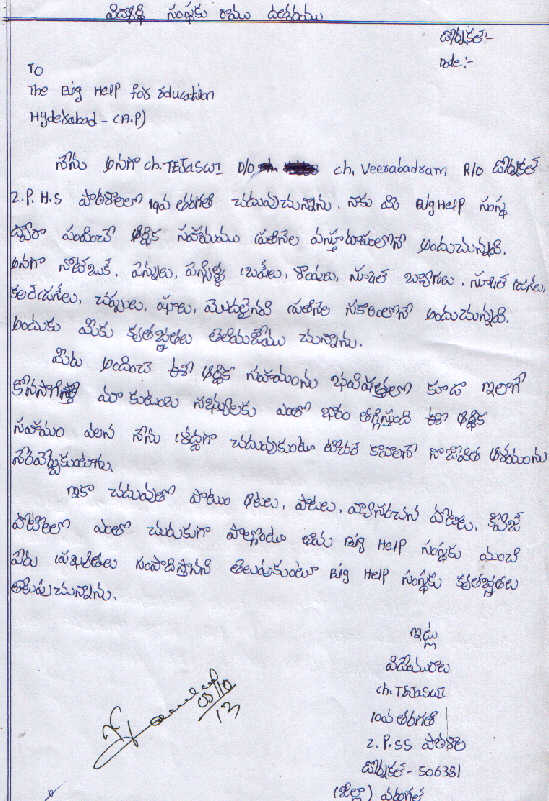 విద్యార్థి సంస్థకు రాయు ఉత్తరము
డోర్నకల్:-
Date:-
TO
The Big Help for education
Hyderabad - (A.P)
నేను అనగా ch. TEJASWI D/O ch. Veerabadram, R/O డోర్నకల్
Z.P.H.S పాఠశాలలో 10వ తరగతి చదువుచున్నాను. నాకు మీ Big HELP సంస్థ
ద్వారా పంపించే ఆర్థిక సహాయము ప్రతినెల వస్తురూపంలోనే అందుచున్నది.
అనగా నోట్‌బుక్స్, పెన్నులు, పెన్సిళ్ళు, స్కూల్ బ్యాగులు, స్కూల్
చెప్పులు, షూలు, మొదలైనవి ప్రతినెల సకాలంలోనే అందుచున్నవి.
అందుకు మీకు కృతజ్ఞతలు తెలియజేయు చున్నాను.
మీరు అందించే ఈ ఆర్థిక సహాయంను భవిష్యత్తులో కూడా ఇలాగే
కొనసాగిస్తే మా కుటుంబ సభ్యులకు ఎంతో భారం తగ్గిస్తుంది ఈ ఆర్థిక
సహాయం వలన నేను శ్రద్ధగా చదువుకుంటూ టీచర్ కావాలనే నా జీవిత ఆశయంను
నెరవేర్చుకుంటాను.
ఇంకా చదువుతో పాటు ఆటలు, పాటలు, వ్యాసరచన పోటీలు, క్విజ్
పోటీలలో ఎంతో చురుకుగా పాల్గొంటూ Big HELP సంస్థకు మంచి
పేరు ప్రఖ్యాతలు సంపాదిస్తానని తెలుపుకుంటూ Big HELP సంస్థకు కృతజ్ఞతలు
తెలుపుచున్నాను.
ఇట్లు
విధేయురాలు
ch. TEJASWI
10వ తరగతి
Z.P.SS పాఠశాల
డోర్నకల్ - 506381
(జిల్లా) వరంగల్